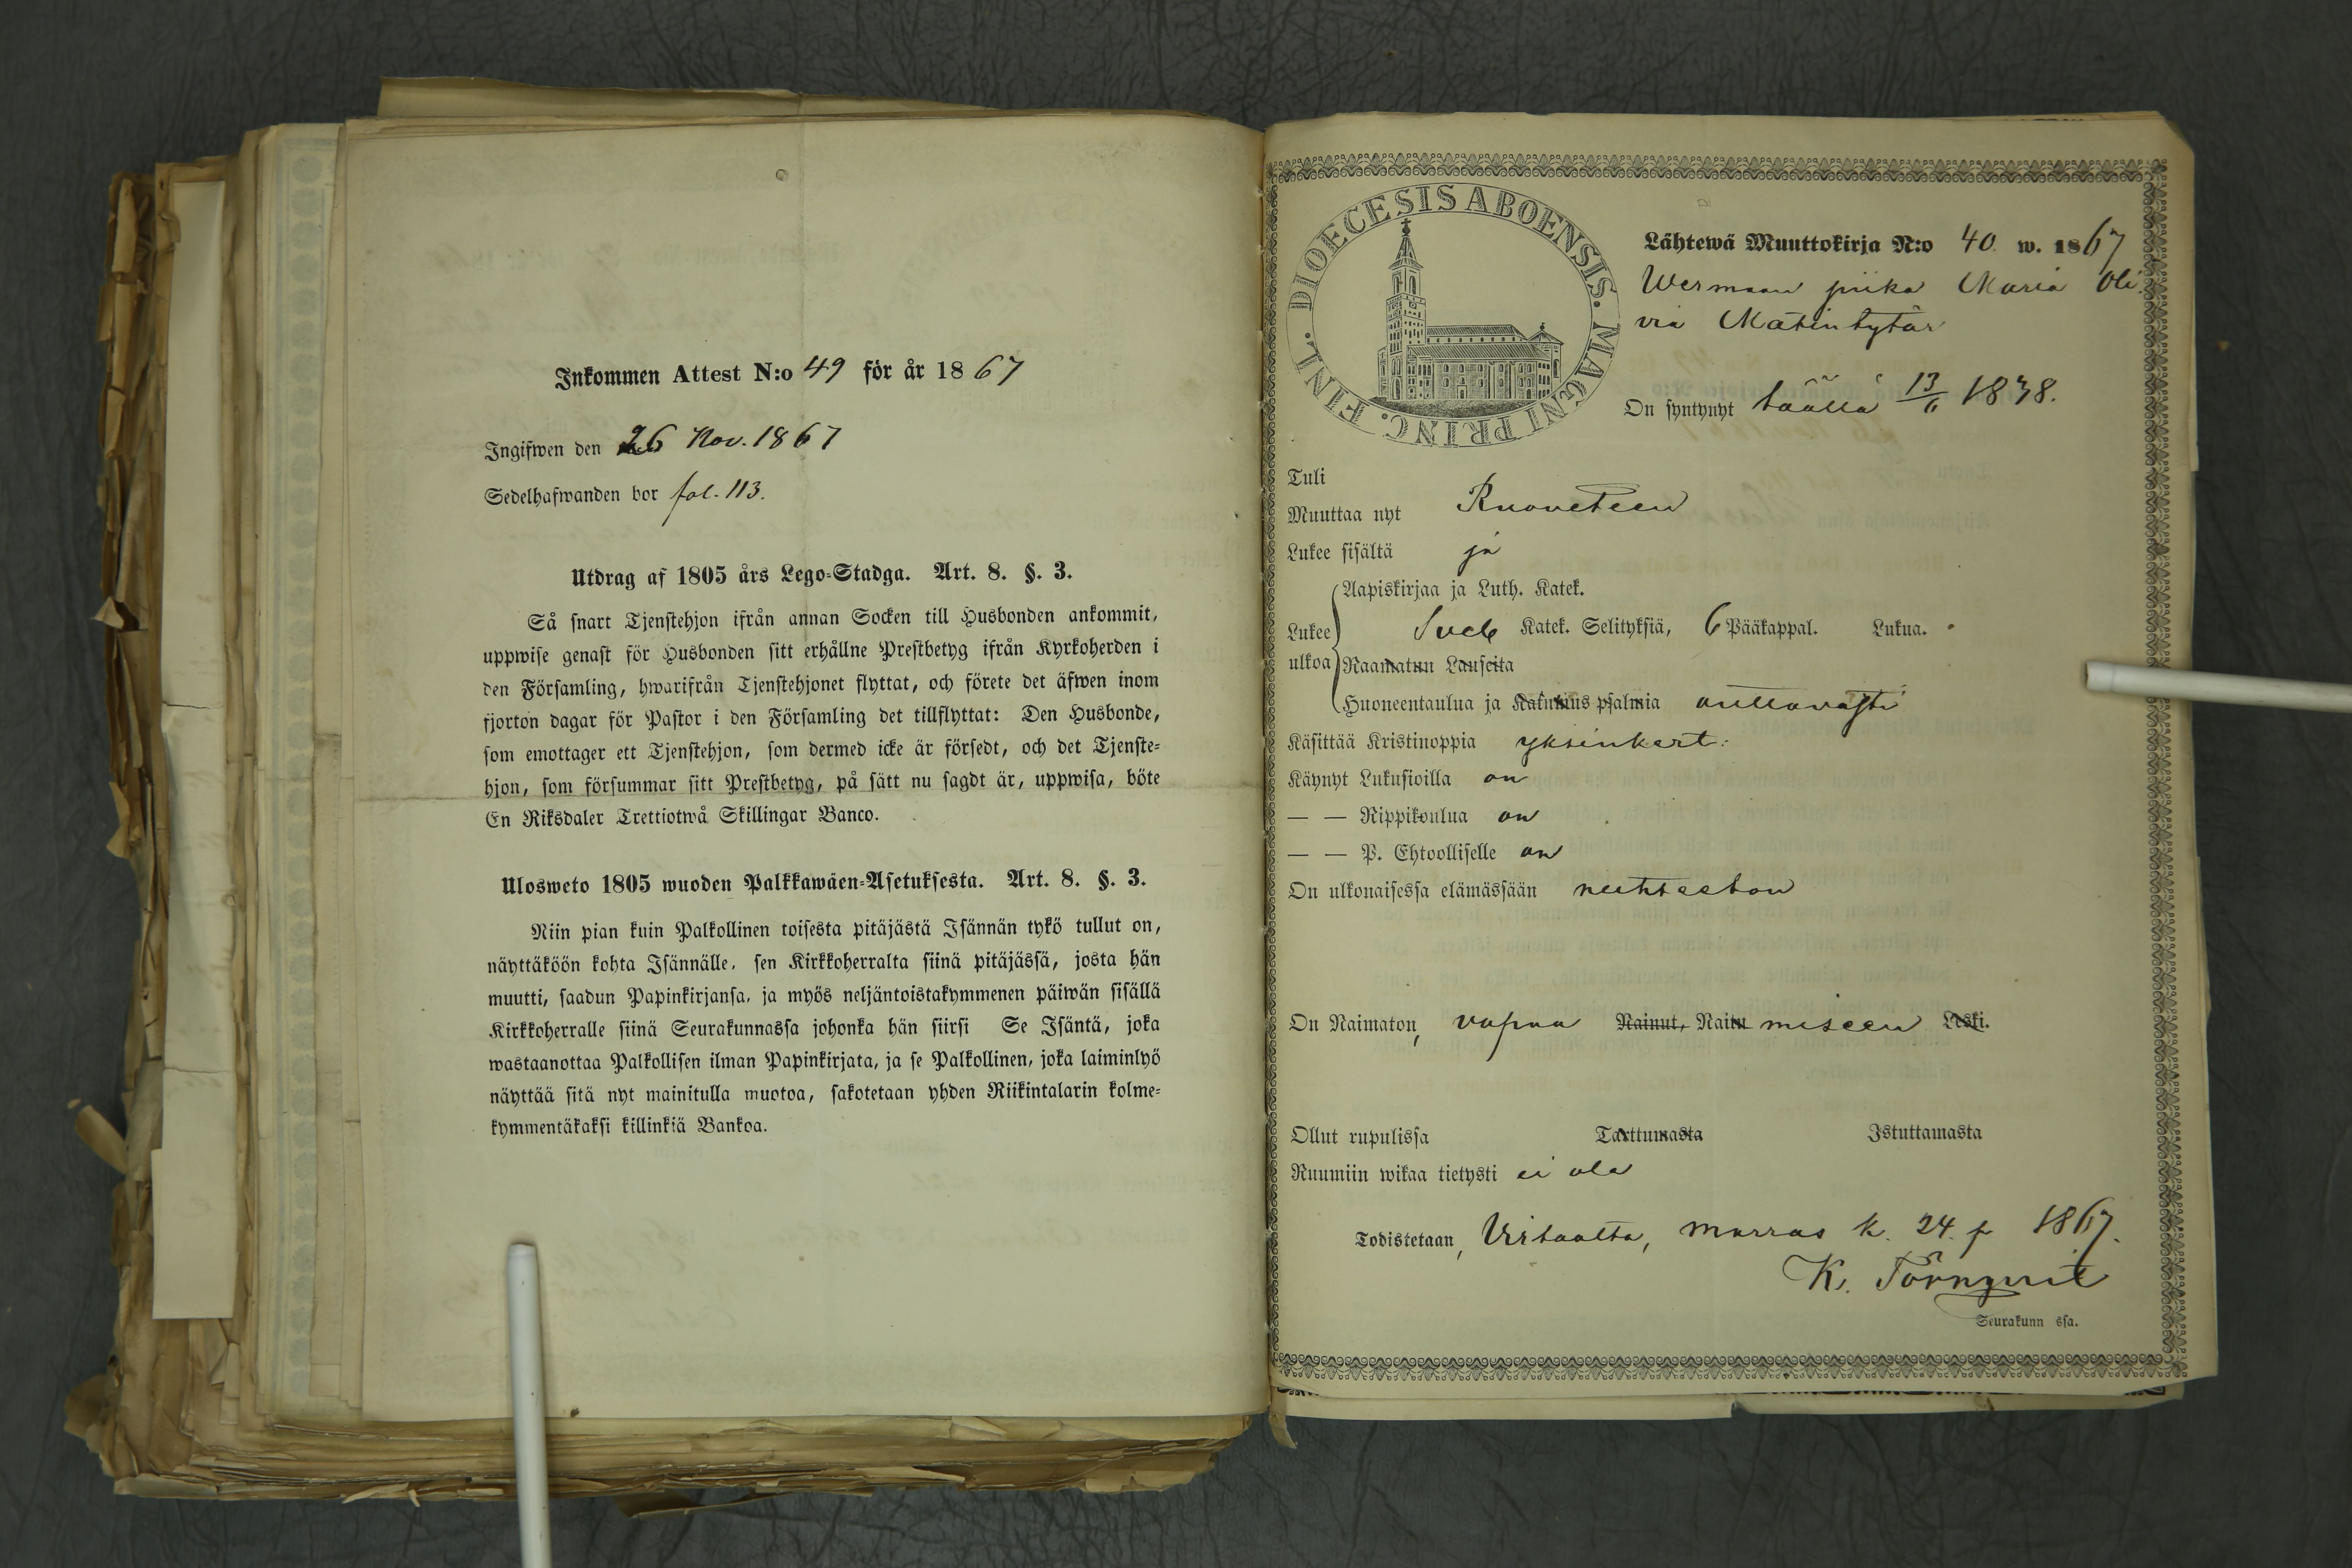 Inkommen Attest N:o 49 för år 1867
Ingifwen den 26 Nov. 1867
Sedelhafwanden bor fol. 113.
Utdrag af 1805 års Lego-Stadga. Art. 8. §. 3.
Så snart Tjenstehjon ifrån annan Socken till Husbonden ankommit,
uppwise genast för Husbonden sitt erhållne Prestbetyg ifrån Kyrkoherden i
den Församling, hwarifrån Tjenstehjonet flyttat, och förete det äfwen inom
fjorton dagar för Pastor i den Församling det tillflyttat: Den Husbonde,
som emottager ett Tjenstehjon, som dermed icke är försedt, och det Tjenste-
hjon, som försummar sitt Prestbetyg, på sätt nu sagdt är, uppwisa, böte
En Riksdaler Trettiotwå Skillingar Banco.
Ulosweto 1805 wuoden Palkkawäen-Asetuksesta. Art. 8. §. 3.
Niin pian kuin Palkollinen toisesta pitäjästä Isännän tykö tullut on,
näyttäköön kohta Isännälle, sen Kirkkoherralta siinä pitäjässä, josta hän
muutti, saadun Papinkirjansa, ja myös neljäntoistakymmenen päiwän sisällä
Kirkkoherralle siinä Seurakunnassa johonka hän siirsi Se Isäntä, joka
wastaanottaa Palkollisen ilman Papinkirjata, ja se Palkollinen, joka laiminlyö
näyttää sitä nyt mainitulla muotoa, sakotetaan yhden Riikintalarin kolme-
kymmentäkaksi killinkiä Bankoa.
DIOECESIS ABOENSIS. MAGNI PRINC. FINL.
Lähtewä Muuttokirja N:o 40. w. 1867
Wermaan piika Maria Oli-
via Matintytär
On syntynyt täällä 13/6 1838.
Tuli
Muuttaa nyt Ruoveteen
Lukee sisältä ja
Aapiskirjaa ja Luth. Katek.
Lukee Sveb Katek. Selityksiä, 6 Pääkappal. Lukua.
ulkoa Raamatun Lauseita
Huoneentaulua ja Katumus psalmia auttavasti
Käsittää Kristinoppia yksinkert:
Käynyt Lukusioilla on
— — Rippikoulua on
— — P. Ehtoolliselle on
On ulkonaisessa elämässään nuhteeton
On Naimaton, vapaa Nainut, Naitu miseen Leski.
Ollut rupulissa Tarttumasta Istuttamasta
Ruumiin wikaa tietysti ei ole
Todistetaan, Virtaalta, marras k. 24. p 1867.
K. Törnqvist
Seurakunn ssa.